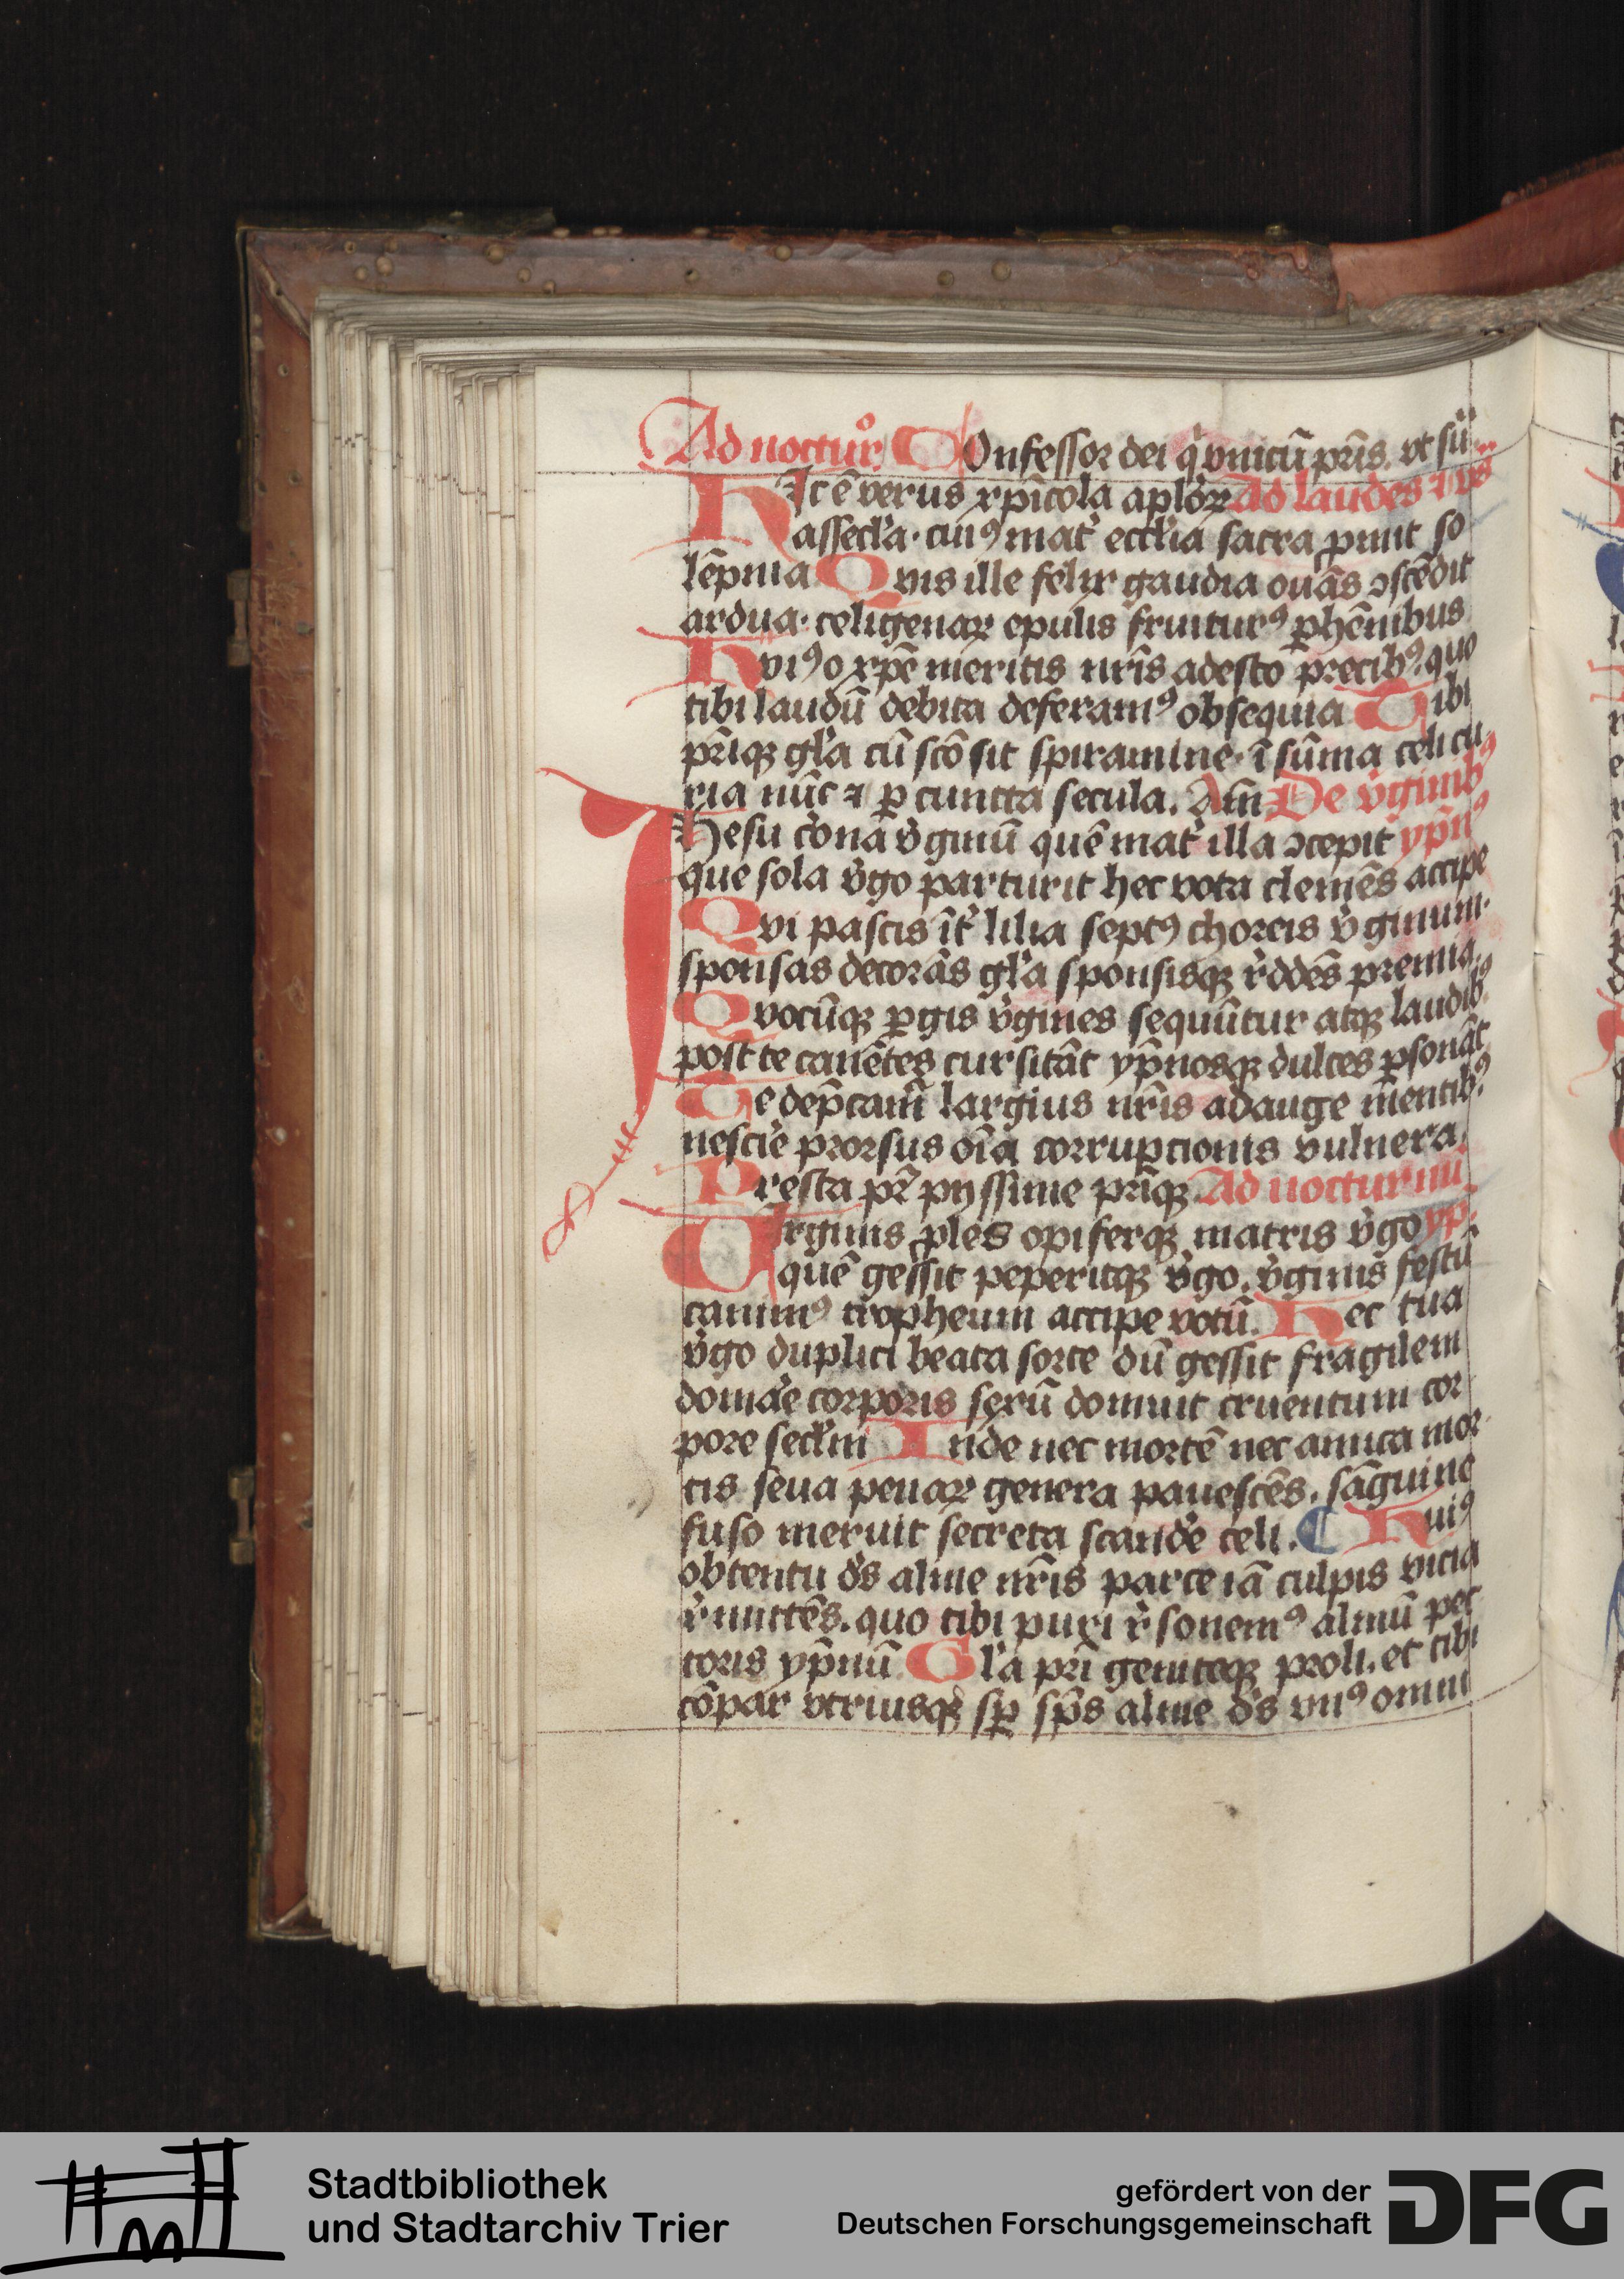 Ad noctur̄. COnfessor dei q̇ vnicū pr̄is. vt sū
HIc ē verus xp̄icola aplo̓ꝝ Ad laudes
assecl̓a · cuiꝰ mat̓ eccl̓ia sacra ꝓmit so
lēpnia Qvis ille felix gaudia ouās ꝯscēdit
ardua · celigenaꝝ epulis fruiturꝰ ꝑhēnibus
Hviꝰ o xp̄e meritis nr̄is adesto precibꝰ. quo
tibi laudū debita deferamꝰ obsequia Tibi
pr̄iqꝫ gl̓a cū scō sit spiramine · ī sūma celi cu
ria nūc ⁊ ꝑ cuncta secula. Am̄ De v̓ginibꝰ
IHesu co̓na v̓ginū quē mat̓ illa ꝯcepit yp̄nꝰ
que sola v̓go parturit hec vota clemēs accipe
Qvi pascis īt̓ lilia septꝰ choreis v̓ginum ·
sponsas decorās gl̓a sponsisqꝫ r̓ddēs premia.
Qvocūqꝫ ꝑgis v̓gines sequūtur atqꝫ laudibꝰ
post te canētes cursitāt yp̄nosqꝫ dulces ꝑsonāt
Te dep̄cam̄ largius nr̄is adauge mentibꝰ
nesci̓e prorsus oīa corrupcionis vulnera.
Presta pr̄ pyssime pr̄iqꝫ. Ad nocturnū
VIrginis ꝓles opiferqꝫ matris v̓go yp.
quē gessit peperitqꝫ v̓go. v̓ginis festū
canimꝰ tropheum accipe votū. Hec tua
v̓go duplici beata sorte dū gessit fragilem
doma̓e corporis sexū domuit cruentum cor
pore secl̓m Inde nec mortē nec amica mor
tis seua penaꝝ genera pauescēs. sāguine
fuso meruit secreta scande̓ celi. ¶ Huiꝰ
obtentu ds̄ alme nr̄is parce iā culpis vicia
r̓mittēs. quo tibi puri r̓sonemꝰ almū pec
toris yp̄nū Gl̓a pr̄i geniteqꝫ proli. et tibi
cōpar vtriusqꝫ sꝑ sp̄s alme ds̄ vnꝰ omni
Stadtbibliothek
und Stadtarchiv Trier
gefördert von der
Deutschen Forschungsgemeinschaft
DFG